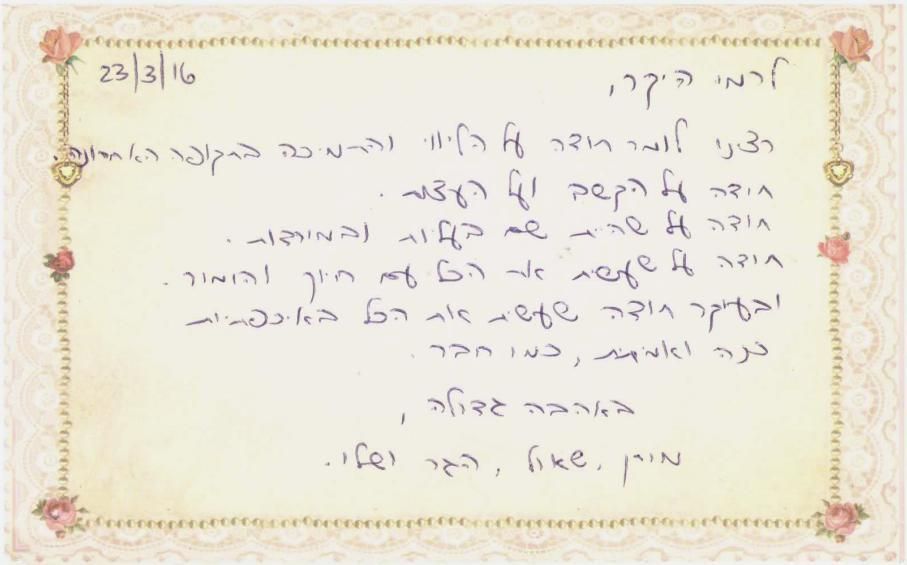 23/3/16
לרמי היקר,
רצינו לומר תודה על הליווי והתמיכה בתקופה האחרונה.
תודה על הקשב ועל העצות.
תודה על שהיית שם בעליות ובמורדות.
תודה על שעשית את הכל עם חיוך והומור.
ובעיקר תודה שעשית את הכל באיכפתיות
כנה ואמיתית, כמו חבר.
באהבה גדולה,
מורן, שאול, הגר ושלו.